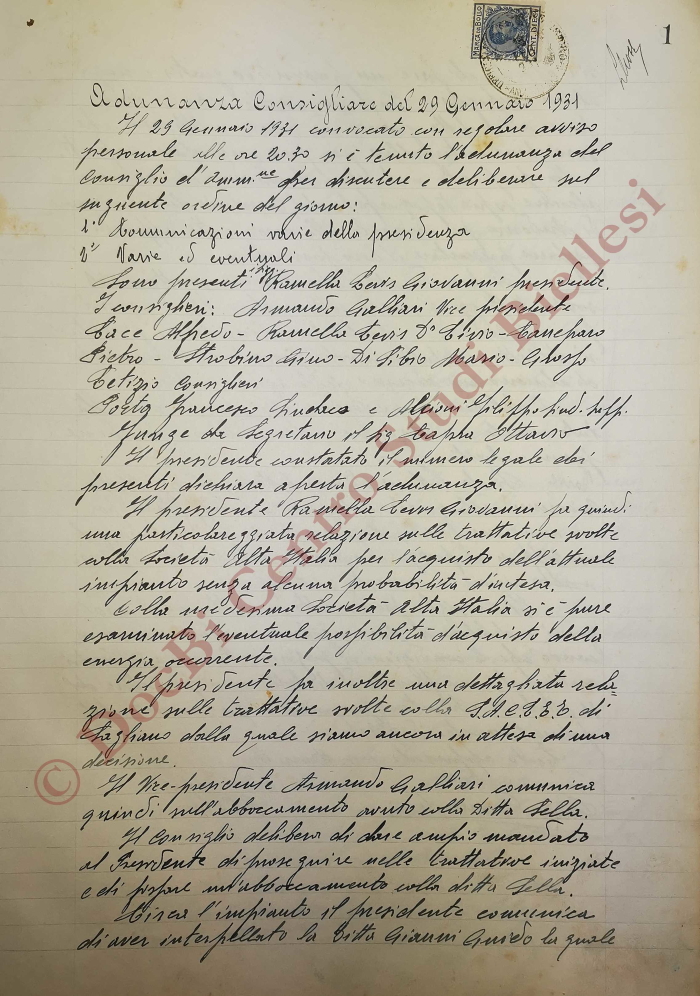 1
MARCA DA BOLLO
Adunanza Consigliare del 29 Gennaio 1931
Il 29 Gennaio 1931 convocato con regolare avviso
personale alle ore 20.30 si è tenuto l'adunanza del
Consiglio d'Amm.ne per discutere e deliberare sul
seguente ordine del giorno:
1° Comunicazioni varie della presidenza
2° Varie ed eventuali
Sono presenti Ramella Levis Giovanni presidente.
I consiglieri: Armando Galliari Vice presidente
Pace Alfredo - Ramella Levis D° Livio - Canepato
Pietro - Strobino Gino - Di Libio Mario - Grosso
Tetizio Consiglieri
Poeta Francesco Sindaco e Alcioni Filippo Sind. supp.
Funge da Segretario il sig Capra Ottavio
Il presidente constatato il numero legale dei
presenti dichiara aperta l'adunanza.
Il presidente Ramella Levis Giovanni fa quindi
una particolareggiata relazione sulle trattative svolte
colla Società Alta Italia per l'acquisto dell'attuale
impianto senza alcuna probabilità d'intesa.
Colla medesima Società Alta Italia si è pure
esaminato l'eventuale possibilità d'acquisto della
energia occorrente.
Il presidente fa inoltre una dettagliata rela-
zione sulle trattative svolte colla di
Sagliano dalla quale siamo ancora in attesa di una
decisione.
Il Vice-presidente Armando Galliari comunica
quindi sull'abboccamento avuto colla Ditta Sella.
Il Consiglio delibera di dare ampio mandato
al Presidente di proseguire nelle trattative iniziate
e di fissare un'abboccamento colla ditta Sella.
Circa l'impianto il presidente comunica
di aver interpellato la Ditta Gianni Guido la quale
© DocBi Centro Studi Biellesi